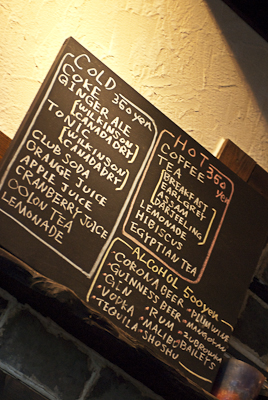 COLD
360 yen
COKE
GINGER ALE
[WILKINSON
CANADADRY]
TONIC
[WILKINSON
CANADADRY]
CLUB SODA
ORANGE JUICE
APPLE JUICE
CRANBERRY JUICE
OOLON TEA
LEMONADE
HOT 360 yen
COFFEE
TEA
[BREAKFAST
EARL
ASSAM
DARJEELING]
LEMONADE
HIBISCUS
EGYPTIAN TEA
ALCOHOL 500yen
・CORONA BEER ・PLUM WINE
・GUINNESS BEER
・GIN ・RUM ・ZUBROWKA
・VODKA ・MALIBU ・BAILEYS
・TEQUILA ・SHOSHU